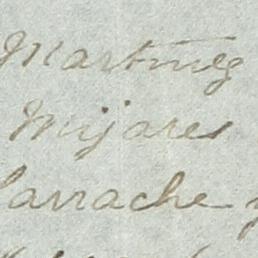 Martinez
Mijares
larrache y